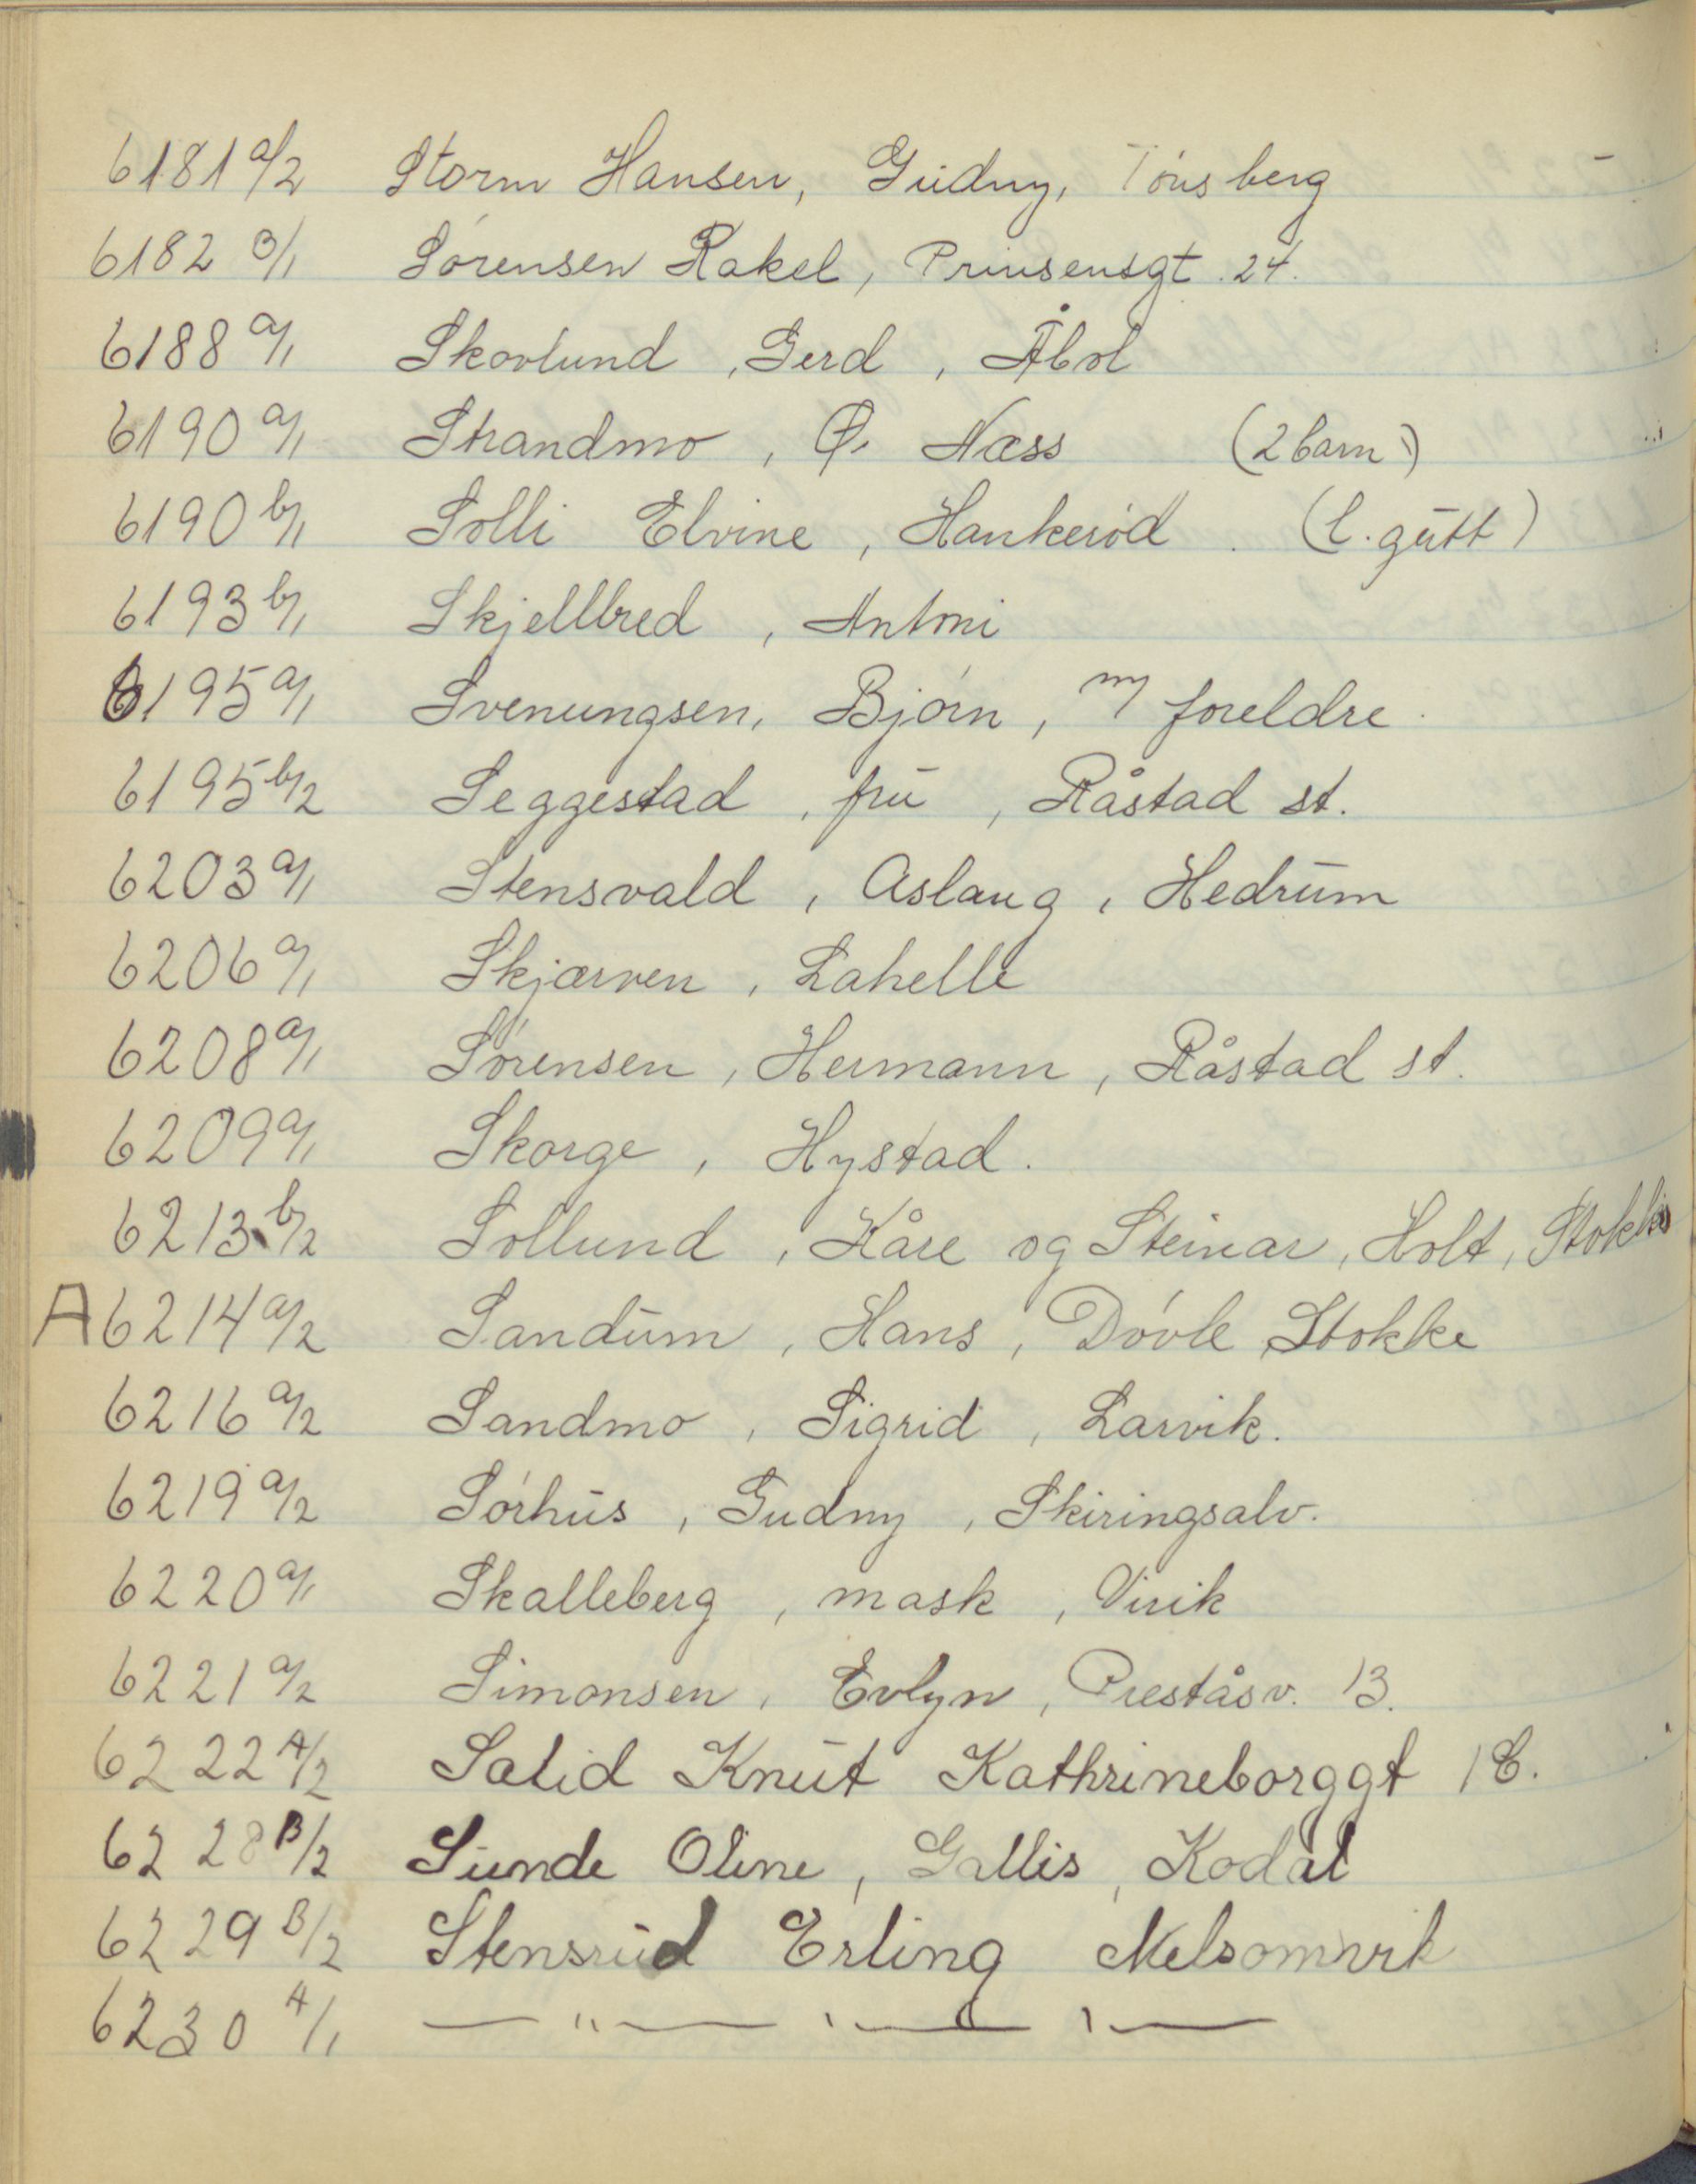 6181 a/2 Storm Hansen, Gudny, Tönsberg
6182 B/1 Sörensen Rakel, Prinsensgt. 24.
6188 a/1 Skovlund, Gerd, Åbol
6190 a/1 Strandmo, Ø. Næss (2 barn)
6190 b/1 Solli Elvine, Hankeröd. (l. gutt)
6193 b/1 Skjellbred, Antoni
6195 a/1 Svenungsen, Björn, m/ foreldre.
6195 b/2 Seggestad, fru, Råstad st.
6203 a/1 Stensvald, Aslaug, Hedrum
6206 a/1 Skjærven, Lahelle
6208 a/1 Sörensen, Hermann, Råstad st.
6209 a/1 Skorge, Hystad.
6213 b/2 Sollund, Kåre og Steinar, Holt, Stokke
A 6214 a/2 Sandum, Hans, Dövle, Stokke
6216 a/2 Sandmo, Sigrid, Larvik.
6219 a/2 Sörhus, Gudny, Skiringsalv.
6220 a/1 Skalleberg, mask, Virik
6221 a/2 Simonsen, Evlyn, Preståsv. 13.
6222 A/2 Salid Knut Kathrineborggt 1 C.
6228 B/2 Sunde Oline, Gallis, Kodal
6229 B/2 Stensrud Erling Melsomvik
6230 A/1 — " — " — " —